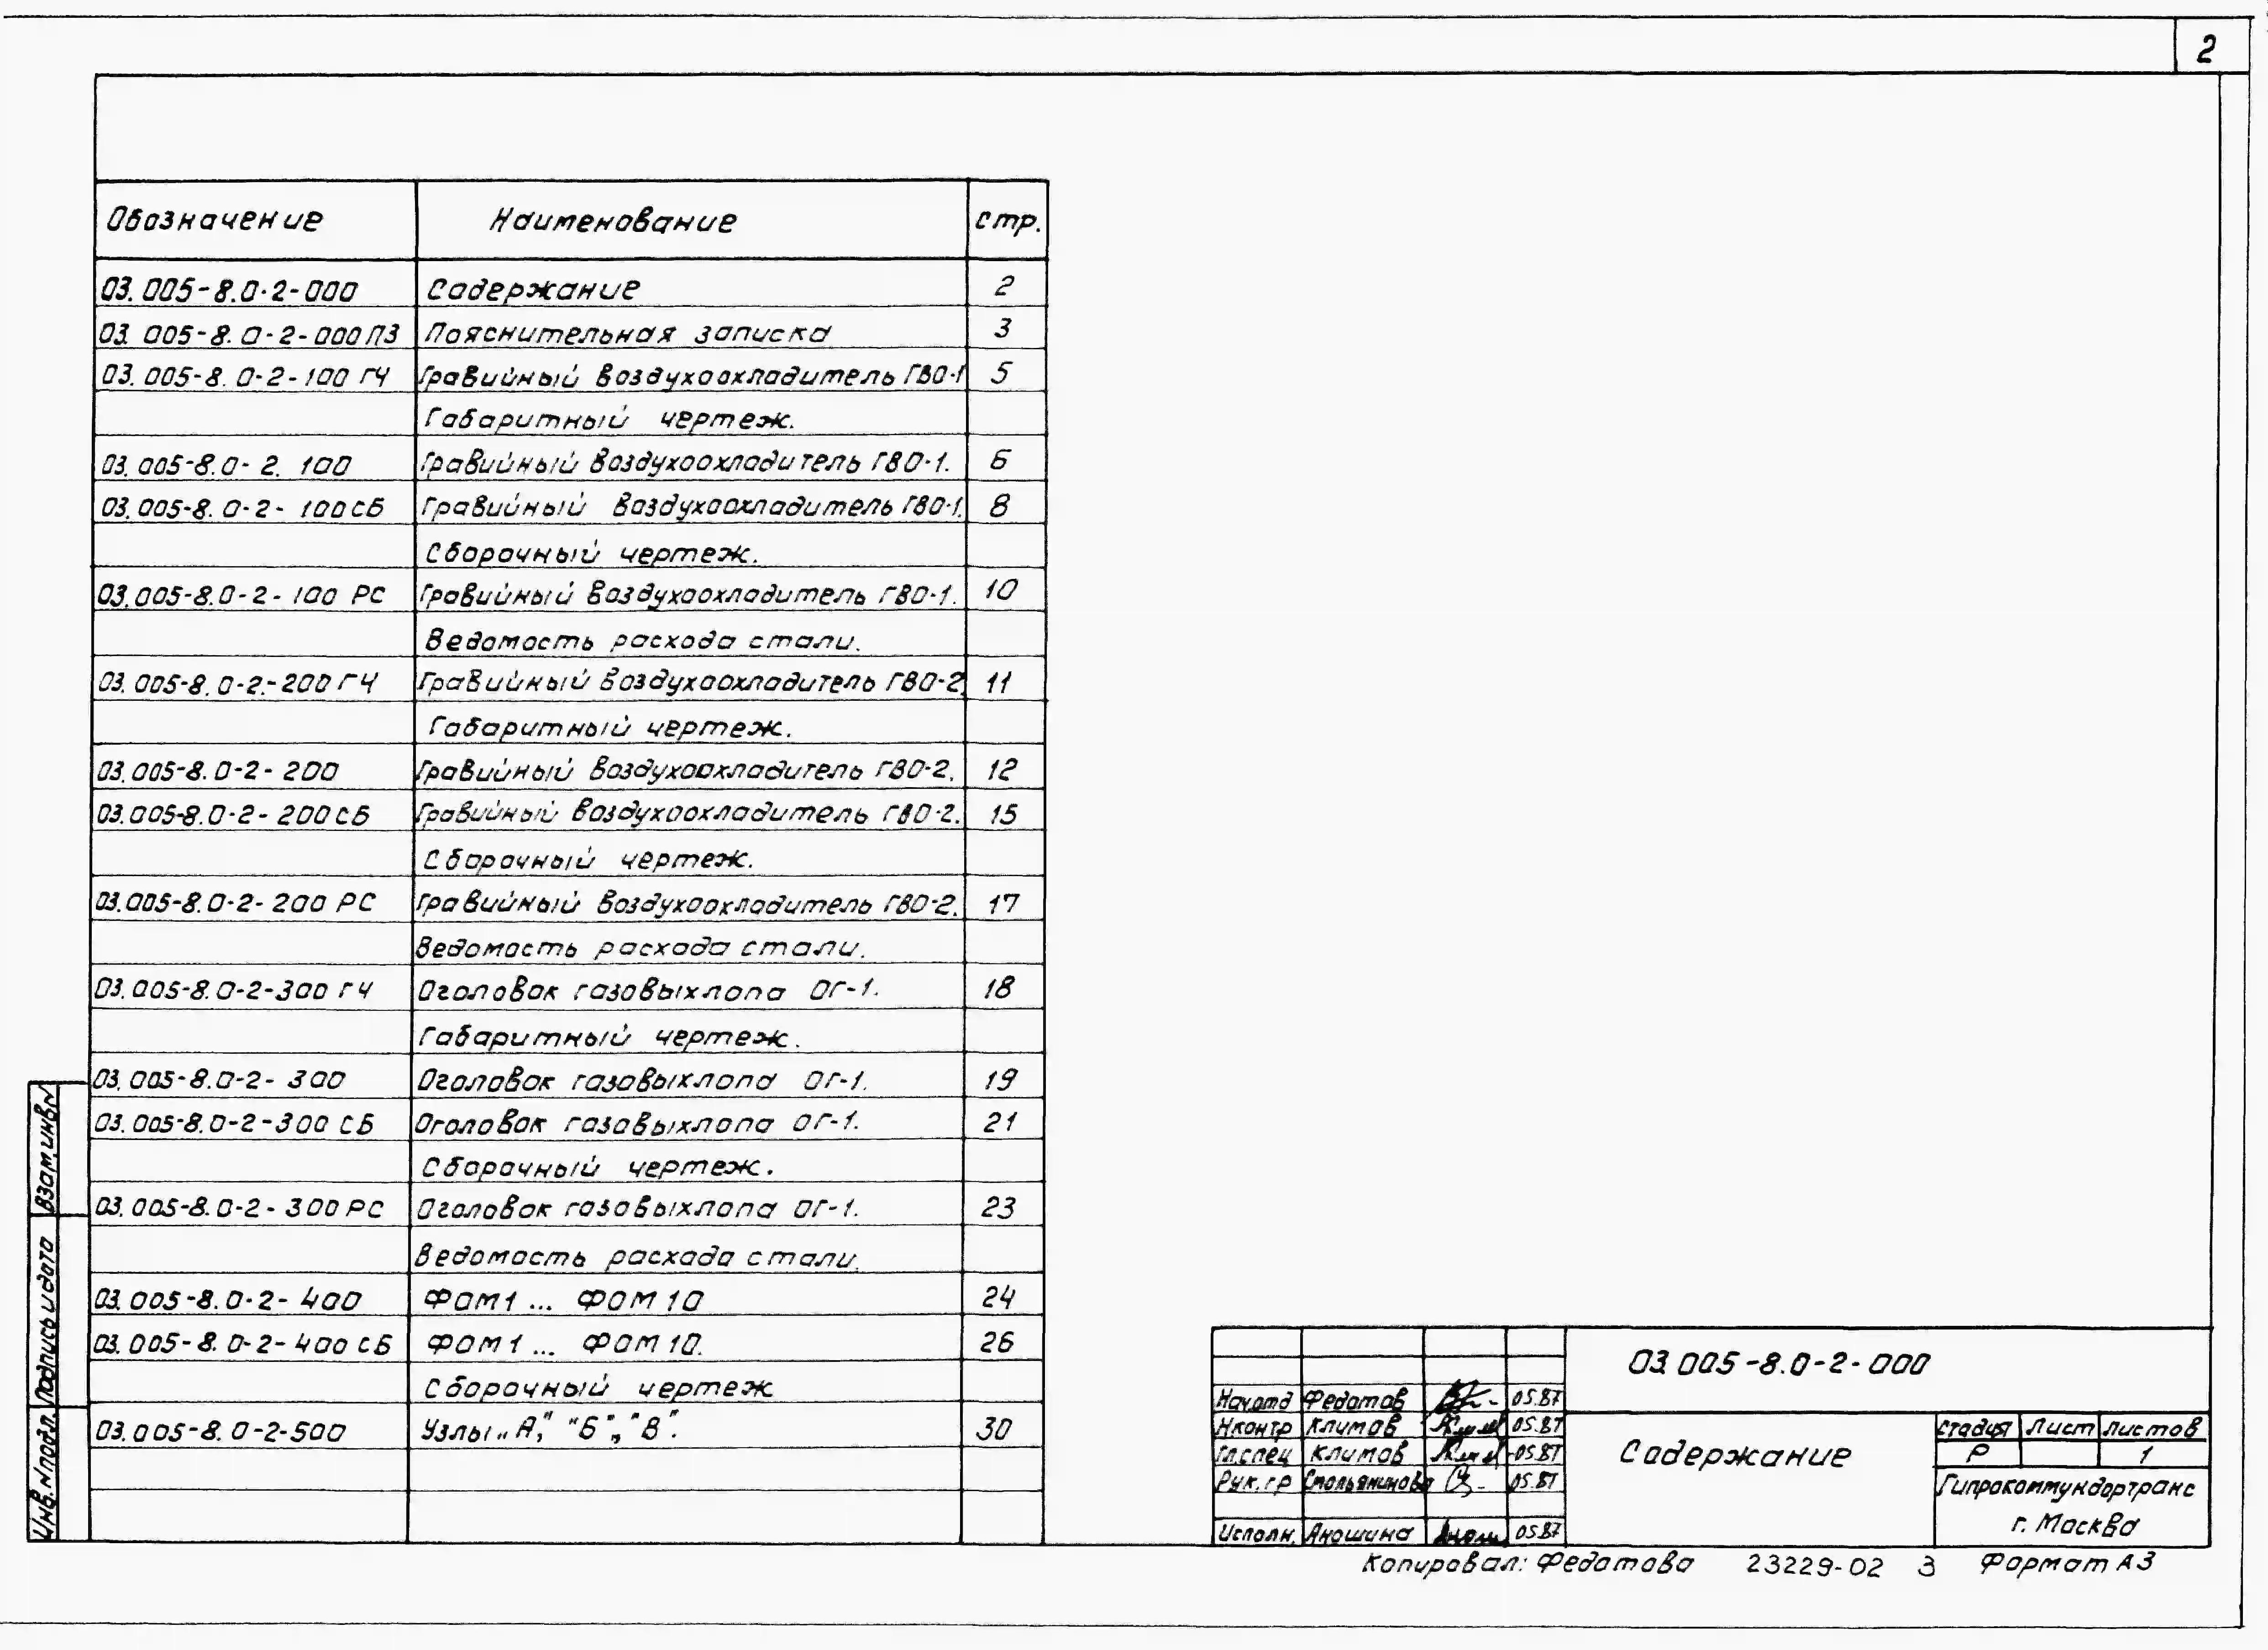 2
Обозначение Наименование стр.
03.005-8.0-2-000 Содержание 2
03.005-8.0-2-000ПЗ Пояснительная записка 3
03.005-8.0-2-100 ГЧ Гравийный воздухоохладитель ГВО-1 5
Габаритный чертеж.
03.005-8.0-2.100 Гравийный воздухоохладитель ГВО-1. 6
03.005-8.0-2-100СБ Гравийный воздухоохладитель ГВО-1. 8
Сборочный чертеж.
03.005-8.0-2-100 РС Гравийный воздухоохладитель ГВО-1. 10
Ведомость расхода стали.
03.005-8.0-2.-200 ГЧ Гравийный воздухоохладитель ГВО-2. 11
Габаритный чертеж.
03.005-8.0-2-200 Гравийный воздухоохладитель ГВО-2. 12
03.005-8.0-2-200СБ Гравийный воздухоохладитель ГВО-2. 15
Сборочный чертеж.
03.005-8.0-2-200 РС Гравийный воздухоохладитель ГВО-2. 17
Ведомость расхода стали.
03.005-8.0-2-300 ГЧ Оголовок газовыхлопа ОГ-1. 18
Габаритный чертеж.
03.005-8.0-2-300 Оголовок газовыхлопа ОГ-1. 19
03.005-8.0-2-300 СБ Оголовок газовыхлопа ОГ-1. 21
Сборочный чертеж.
03.005-8.0-2-300 РС Оголовок газовыхлопа ОГ-1. 23
Ведомость расхода стали.
03.005-8.0-2-400 ФОМ1... ФОМ10 24
03.005-8.0-2-400 СБ ФОМ1... ФОМ10. 26
Сборочный чертеж
03.005-8.0-2-500 Узлы „А," "Б", "В". 30
Взам.инв.N
Подпись и дата
Инв.N подл.
03.005-8.0-2-000
Нач.отд Федотов 05.87
Н.контр Климов 05.87
Гл.спец Климов 05.87
Рук.гр Стольянинова 05.87
Исполн. Аношина 05.87
Содержание
стадия Лист Листов
Р 1
Гипрокоммундортранс
г. Москва
Копировал: Федотова 23229-02 3 Формат А3